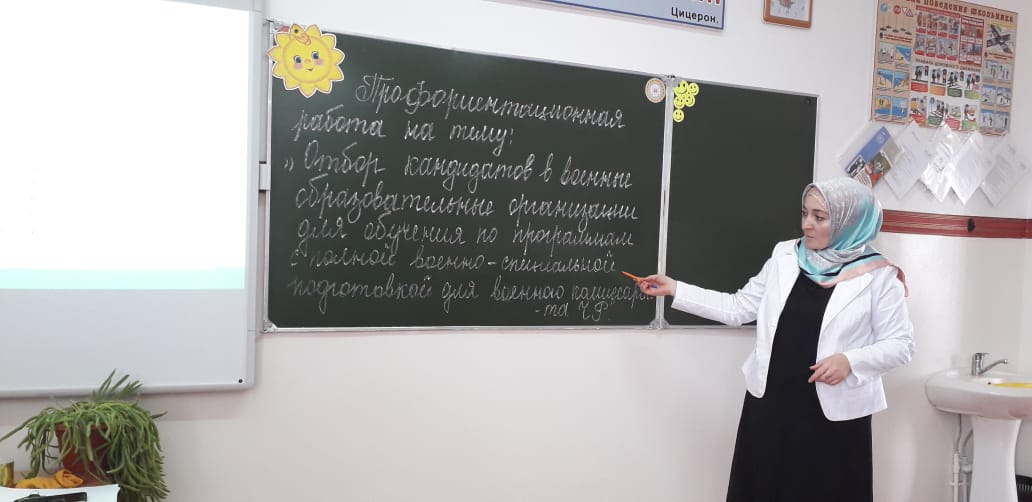 Цицерон.
поведения школьника
Профориентационная
работа на тему:
„Отбор кандидатов в военные
образовательные организации
для обучения по программам
с полной военно-специальной
подготовкой для военного комиссариа-
-та ЧР"